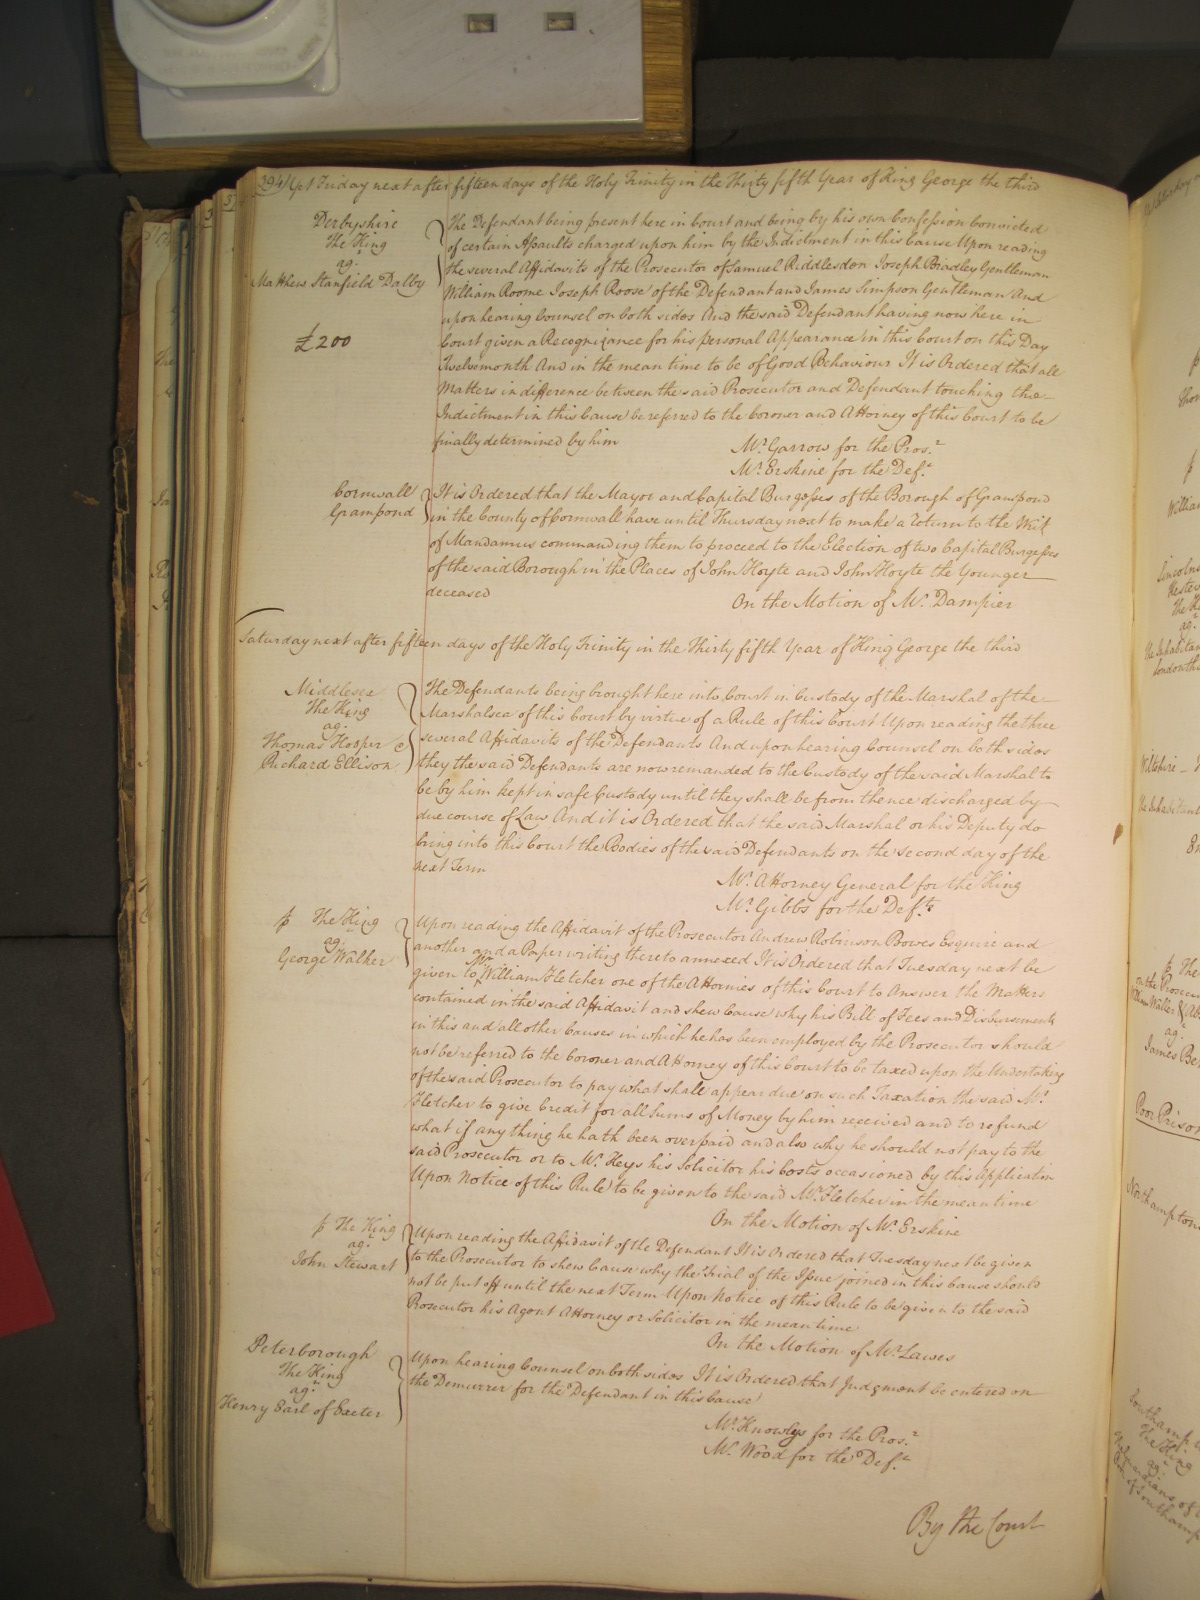 294 Yet Friday next after fifteen days of the Holy Trinity in the Thirty fifth Year of King George the third
Derbyshire
The King
agt.
Matthew Stanfield Dalby
£200
The Defendant being present here in Court and being by his own Confession Convicted
of certain Assaults charged upon him by the Indictment in this Cause Upon reading
the several Affidavits of the Prosecutor of Samuel Riddlesden Joseph Bradley Gentleman
William Roome Joseph Roose of the Defendant and James Simpson Gentleman And
upon hearing Counsel on both sides And the said Defendant having now here in
Court given a Recognizance for his personal Appearance in this Court on this Day
Twelvemonth And in the mean time to be of Good Behaviour It is Ordered that all
Matters in difference between the said Prosecutor and Defendant touching the
Indictment in this Cause be referred to the Coroner and Attorney of this Court to be
finally determined by him
Mr. Garrow for the Pros.r
Mr. Erskine for the Def.t
Cornwall
Grampond
It is Ordered that the Mayor and Capital Burgesses of the Borough of Grampond
in the County of Cornwall have until Thursday next to make a return to the Writ
of Mandamus commanding them to proceed to the Election of two Capital Burgesses
of the said Borough in the Places of John Hoyte and John Hoyte the Younger
deceased
On the Motion of Mr. Dampier
Saturday next after fifteen days of the Holy Trinity in the Thirty fifth Year of King George the third
Middlesex
The King
agt.
Thomas Hooper &
Richard Ellison
The Defendants being brought here into Court in Custody of the Marshal of the
Marshalsea of this Court by virtue of a Rule of this Court Upon reading the three
several Affidavits of the Defendants And upon hearing Counsel on both sides
they the said Defendants are now remanded to the Custody of the said Marshal to
be by him kept in safe Custody until they shall be from thence discharged by
due course of Law And it is Ordered that the said Marshal or his Deputy do
bring into this Court the Bodies of the said Defendants on the second day of the
next Term
Mr. Attorney General for the King
Mr. Gibbs for the Def.ts
p The King
agt.
George Walker
Upon reading the Affidavit of the Prosecutor Andrew Robinson Bowes Esquire and
another and a Paper writing thereto annexed It is Ordered that Tuesday next be
given to Mr. William Fletcher one of the Attornies of this Court to Answer the Matters
contained in the said Affidavit and shew Cause why his Bill of Fees and Disbursements
in this and all other Causes in which he has been employed by the Prosecutor should
not be referred to the Coroner and Attorney of this Court to be taxed upon the Undertaking
of the said Prosecutor to pay what shall appear due on such Taxation the said Mr.
Fletcher to give Credit for all Sums of Money by him received and to refund
what if any thing he hath been overpaid and also why he should not pay to the
said Prosecutor or to Mr. Heys his Solicitor his Costs occasioned by this Application
Upon Notice of this Rule to be given to the said Mr. Fletcher in the mean time
On the Motion of Mr. Erskine
p The King
agt.
John Stewart
Upon reading the Affidavit of the Defendant It is Ordered that Tuesday next be given
to the Prosecutor to shew Cause why the Trial of the Issue joined in this Cause should
not be put off until the next Term Upon Notice of this Rule to be given to the said
Prosecutor his Agent Attorney or Solicitor in the mean time
On the Motion of Mr. Lawes
Peterborough
The King
agt.
Henry Earl of Exeter
Upon hearing Counsel on both sides It is Ordered that Judgment be entered on
the Demurrer for the Defendant in this Cause
Mr. Knowlys for the Pros.r
Mr. Wood for the Def.t
By the Court